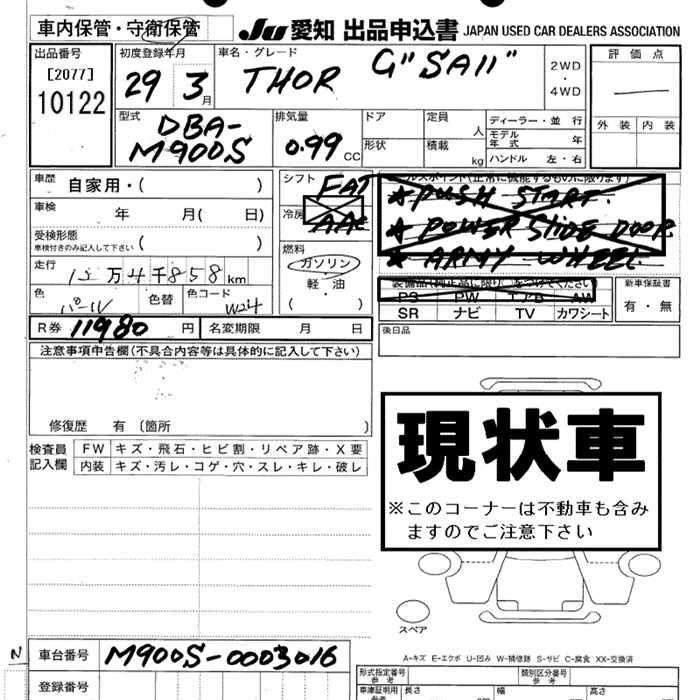 車内保管・守衛保管 Ju 愛知 出品申込書 JAPAN USED CAR DEALERS ASSOCIATION
出品番号
[2077]
10122
初度登録年月
29 3月
車名・グレード
THOR G"SAII"
2WD
・
4WD
評価点
外装 内装
型式
DBA-
M900S
排気量
0.99 CC
ドア
形状
定員 人
積載 kg
ディーラー・並行
モデル年式 年
ハンドル 左・右
車歴 自家用・( )
車検 年 月( 日)
受検形態
車検付きのみ記入して下さい ( )
走行
万4千858km
色
パール
色替
色コード
W24
R券 11980 円
名変期限 月 日
シフト
FAT
冷房
AAC
燃料
ガソリン
・
軽・油
( )
セールスポイント(正常に機能するものに限ります)
★PUSH START.
★POWER SLIDE DOOR.
★ARMY WHEEL
装備品(純正品に限り)をつけてください
PS PW エアB AW
SR ナビ TV カワシート
新車保証書
有・無
後日品
注意事項申告欄(不具合内容等は具体的に記入して下さい)
修復歴 有 〔箇所 〕
検査員
記入欄
FW キズ・飛石・ヒビ割・リペア跡・X要
内装 キズ・汚レ・コゲ・穴・スレ・キレ・破レ
現状車
※このコーナーは不動車も含み
ますのでご注意下さい
スペア
A-キズ E-エクボ U-凹み W-補修跡 S-サビ C-腐食 XX-交換済
N
車台番号 M900S-0003016
登録番号
形式指定番号
参考
類別区分番号
参考
車庫証明用
参考
長さ
幅
高さ